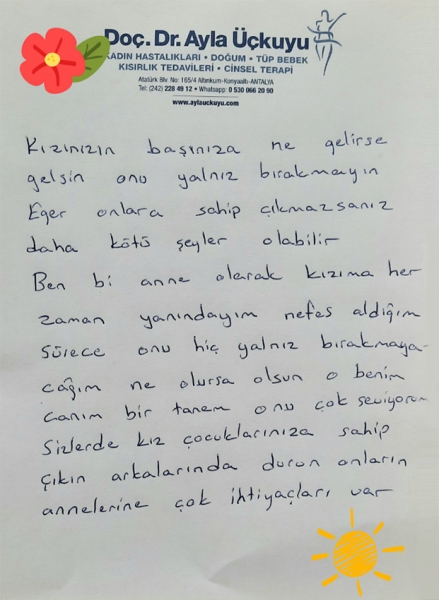 Doç. Dr. Ayla Üçkuyu
KADIN HASTALIKLARI • DOĞUM • TÜP BEBEK
KISIRLIK TEDAVİLERİ • CİNSEL TERAPİ
Atatürk Blv. No: 165/4 Altınkum-Konyaaltı-ANTALYA
Tel: (242) 228 49 12 • Whatsapp: 0 530 066 20 90
www.aylauckuyu.com
Kızınızın başınıza ne gelirse
gelsin onu yalnız bırakmayın
Eğer onlara sahip çıkmazsanız
daha kötü şeyler olabilir
Ben bi anne olarak kızıma her
zaman yanındayım nefes aldığım
sürece onu hiç yalnız bırakmaya-
cağım ne olursa olsun o benim
canım bir tanem onu çok seviyorum
Sizlerde kız çocuklarınıza sahip
çıkın arkalarında durun onların
annelerine çok ihtiyaçları var